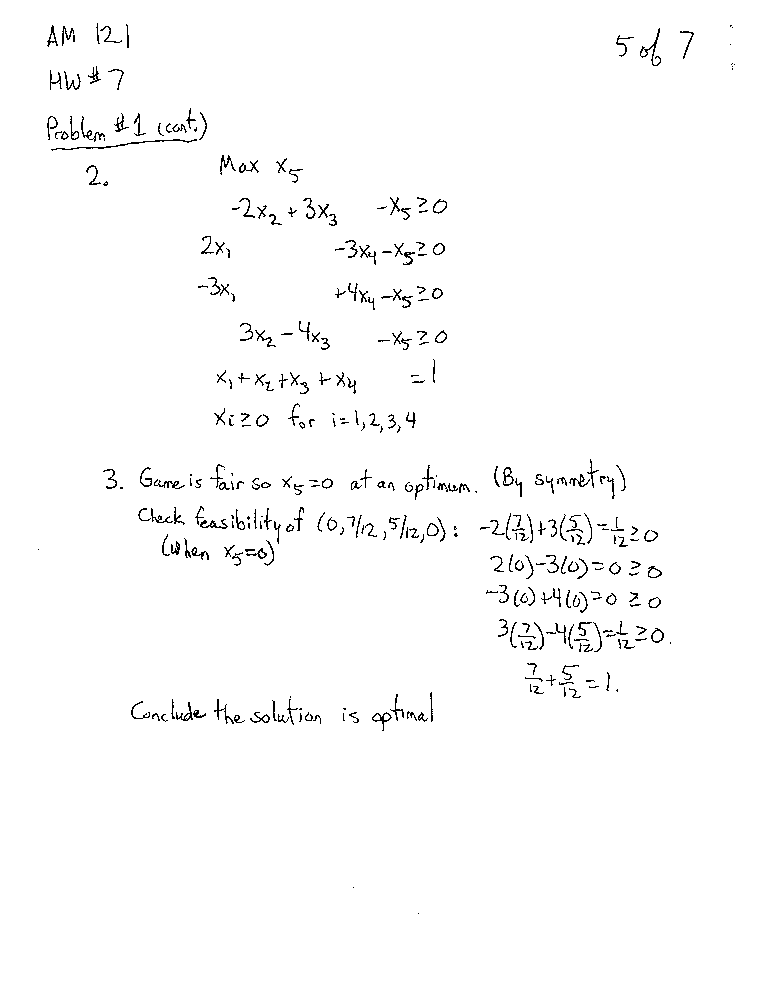 AM 121
5 of 7
HW # 7
Problem # 1 (cont.)
2. Max x₅
-2x₂ + 3x₃ -x₅ ≥ 0
2x₁ -3x₄ -x₅ ≥ 0
-3x₁ +4x₄ -x₅ ≥ 0
3x₂ - 4x₃ -x₅ ≥ 0
x₁ + x₂ + x₃ + x₄ = 1
xi ≥ 0 for i=1,2,3,4
3. Game is fair so x₅=0 at an optimum. (By symmetry)
Check feasibility of (0, 7/12, 5/12, 0): -2(7/12)+3(5/12)=1/12 ≥ 0
(when x₅=0)
2(0)-3(0)=0 ≥ 0
-3(0)+4(0)=0 ≥ 0
3(7/12)-4(5/12)=1/12 ≥ 0.
7/12 + 5/12 = 1.
Conclude the solution is optimal